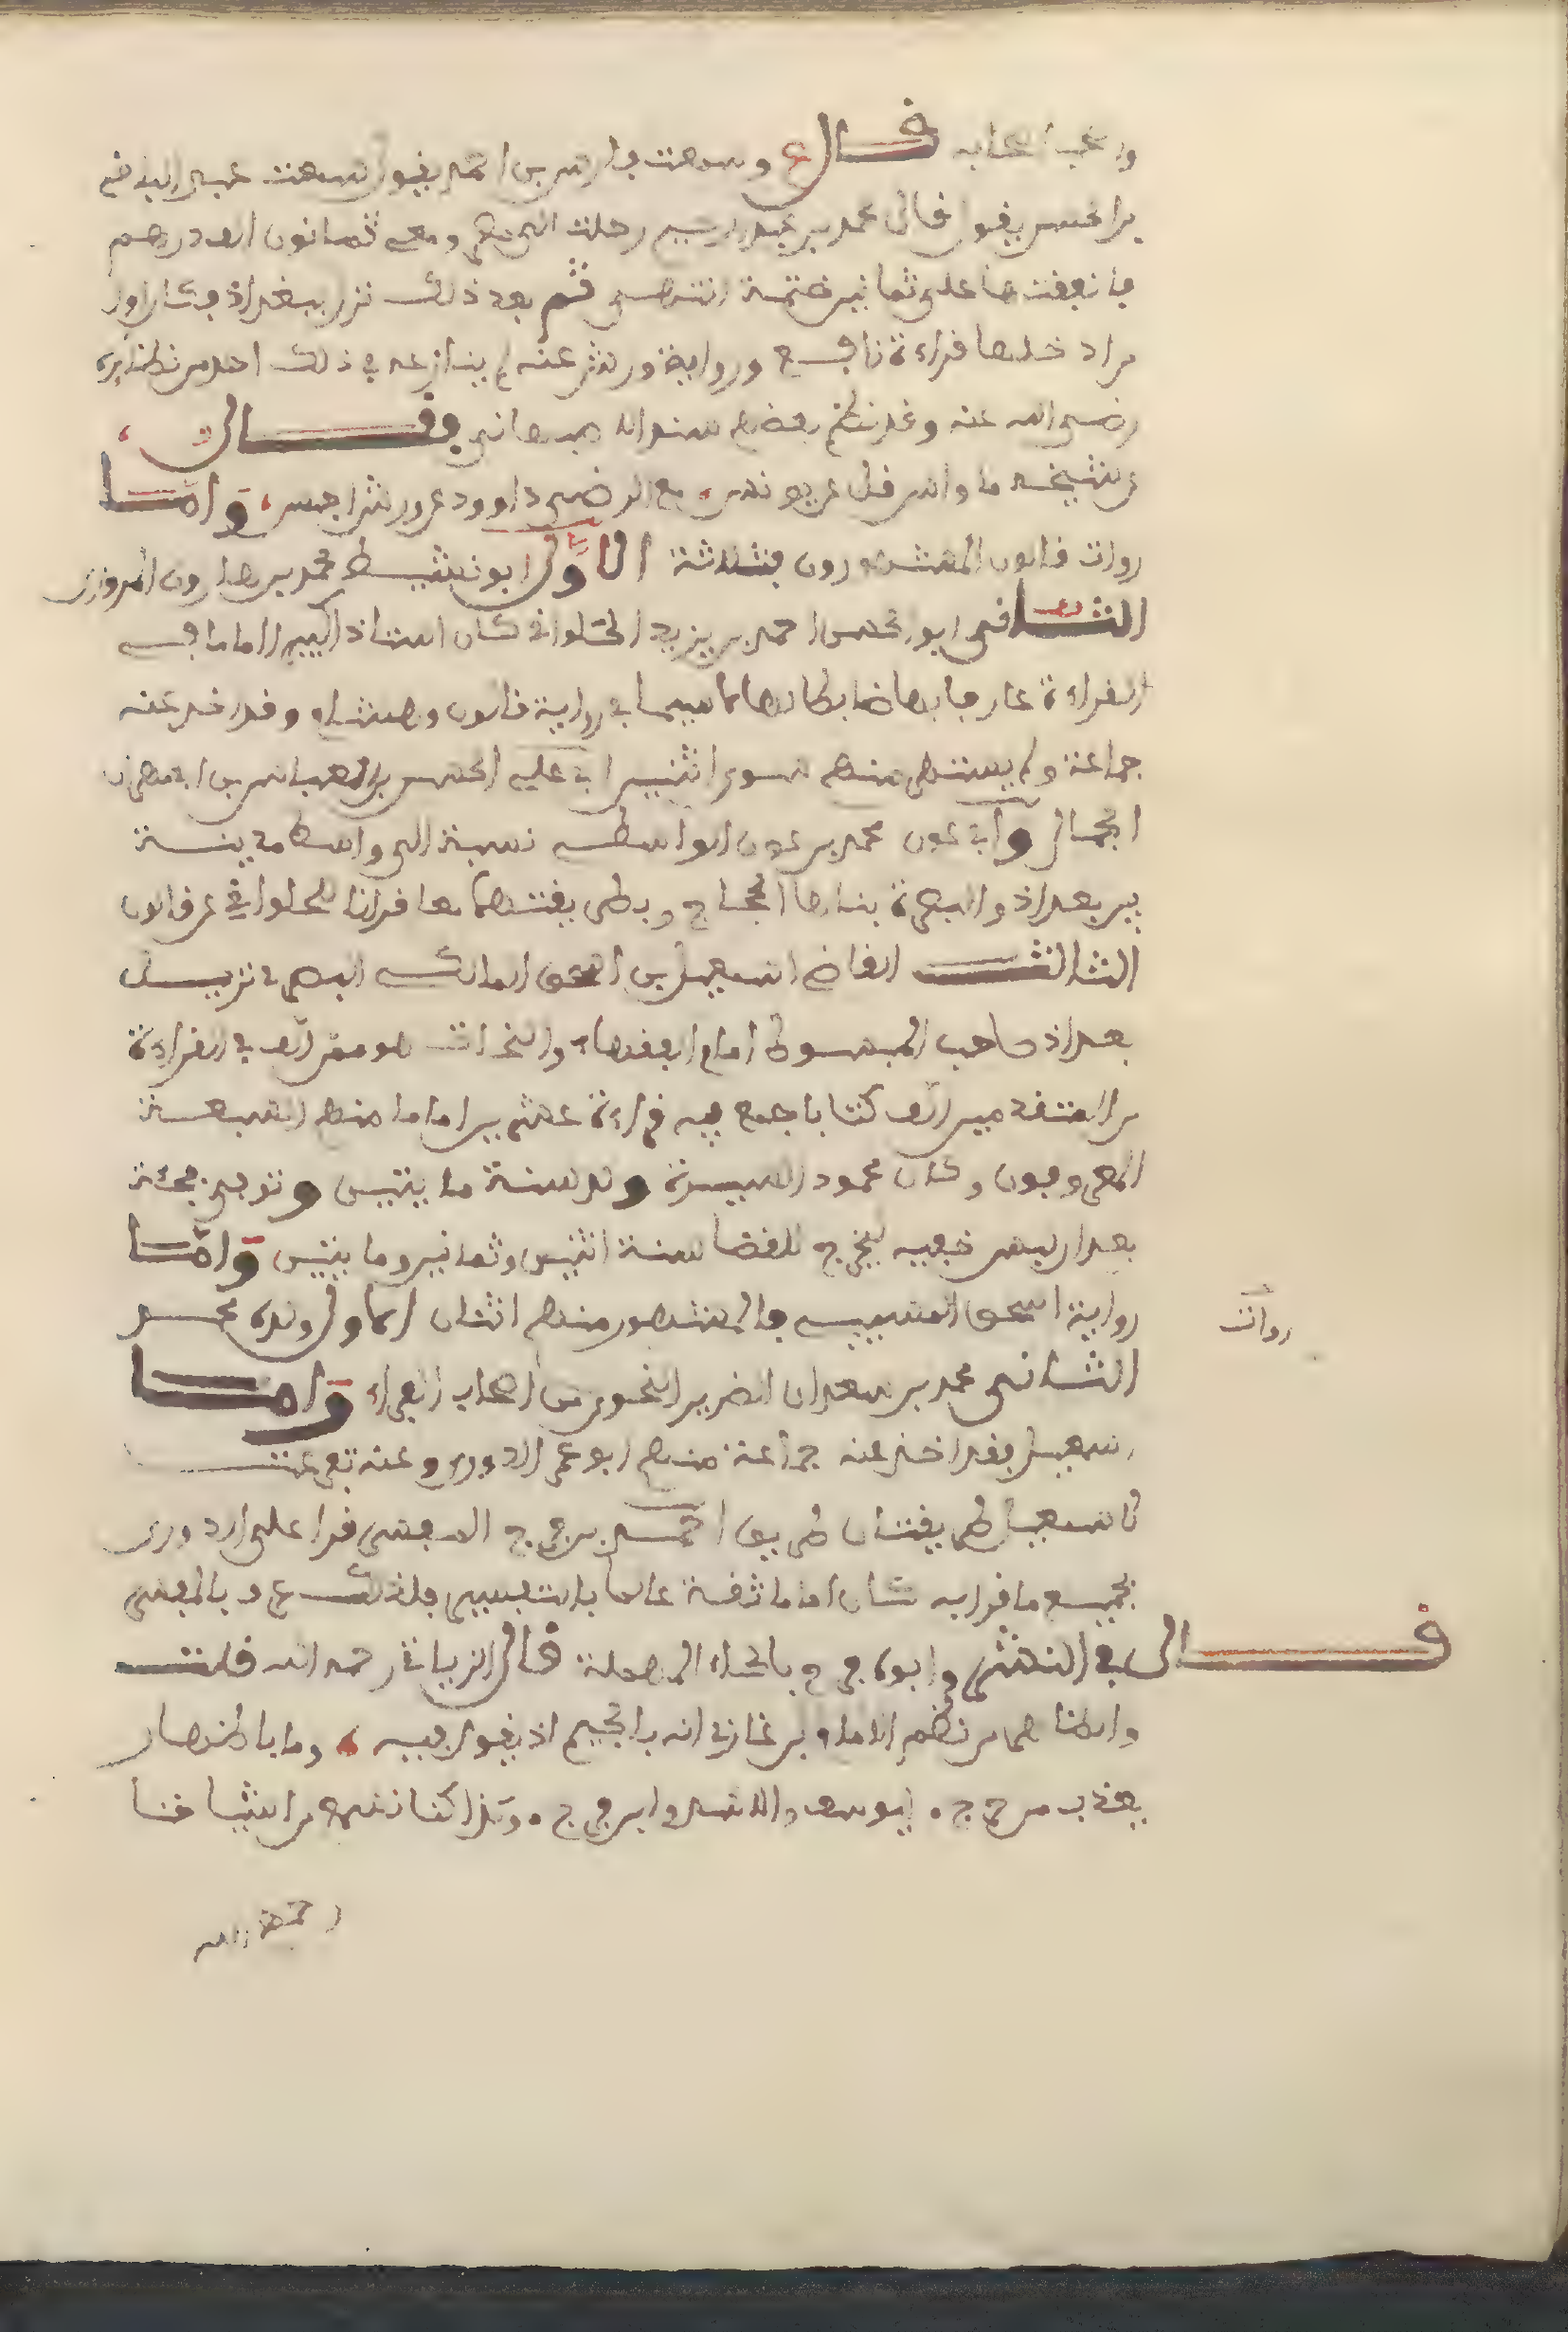 واعجب اصحابه قال وسمعت فارس بن احمد يقول سمعت عبد الباقي
بن الحسن يقول قال محمد بن عبد الرحيم رحلت الى مصر ومعي ثمانون الف درهم
فانفقتها على ثمانين ختمة انتهى ثم بعد ذلك نزل ببغداذ فكان اول
من ادخلها قراءة نافع ورواية ورش عنه لم ينازعه في ذلك احد من نظائره
رضي الله عنه وقد نظم بعضهم سند الاصبهاني فقال
عن شيخه مواس قل عن يونس مع الرضى داوود عن ورش واما
روات قالون المشهورون فثلاثة الاول ابو نشيط محمد بن هارون المروزي
الثاني ابو الحسن احمد بن يزيد الحلواني كان استاذا كبيرا اماما في
القراءة عارفا بها ضابطا لها لاسيما في رواية قالون وهشام وقد اخذ عنه
جماعة ولم يشتهر منهم سوى اثنين ابي علي الحسن بن العباس بن ابي مهران
الجمال وابي عون محمد بن عون الواسطي نسبة الى واسط مدينة
بين بغداذ والبصرة بناها الحجاج وبطريقتهما معا قرانا للحلواني عن قالون
الثالث القاضي اسمعيل بن اسحق المالكي البصري نزيل
بغداذ صاحب المبسوط امام الفقهاء والنحات هو ممن الف في القراءة
من المتقدمين الف كتابا جمع فيه قراءة عشرين اماما منهم السبعة
المعروفون وكان محمود السيرة ولد سنة مايتين وتوفي فجئة
بعد ان لبس خفيه ليخرج للقضا سنة اثنين وثمانين ومايتين واما
رواية اسحق المسيبي فالمشهور منهم اثنان الاول ولده محمد
روات
الثاني محمد بن سعدان الضرير النحوي من اصحاب الفراء واما
اسمعيل فقد اخذ عنه جماعة منهم ابو عمر الدوري وعنه تفرعت
لاسمعيل طريقتان طريق احمد بن فرح المفسر قرا على الدوري
بجميع ما قرا به كان اماما ثقة عالما بالتفسير فلذلك عرف بالمفسر
قال في النشر وابوه فرح بالحاء المهملة قال الزياتي رحمه الله قلت
واما ما من نظم الامام ابن غازي انه بالجيم اذ يقول فيه وما باظهار
يعذب من حرج ايوسف والانس وابن فرج وكذا كنا نسمع من اشياخنا
رحمهم الله